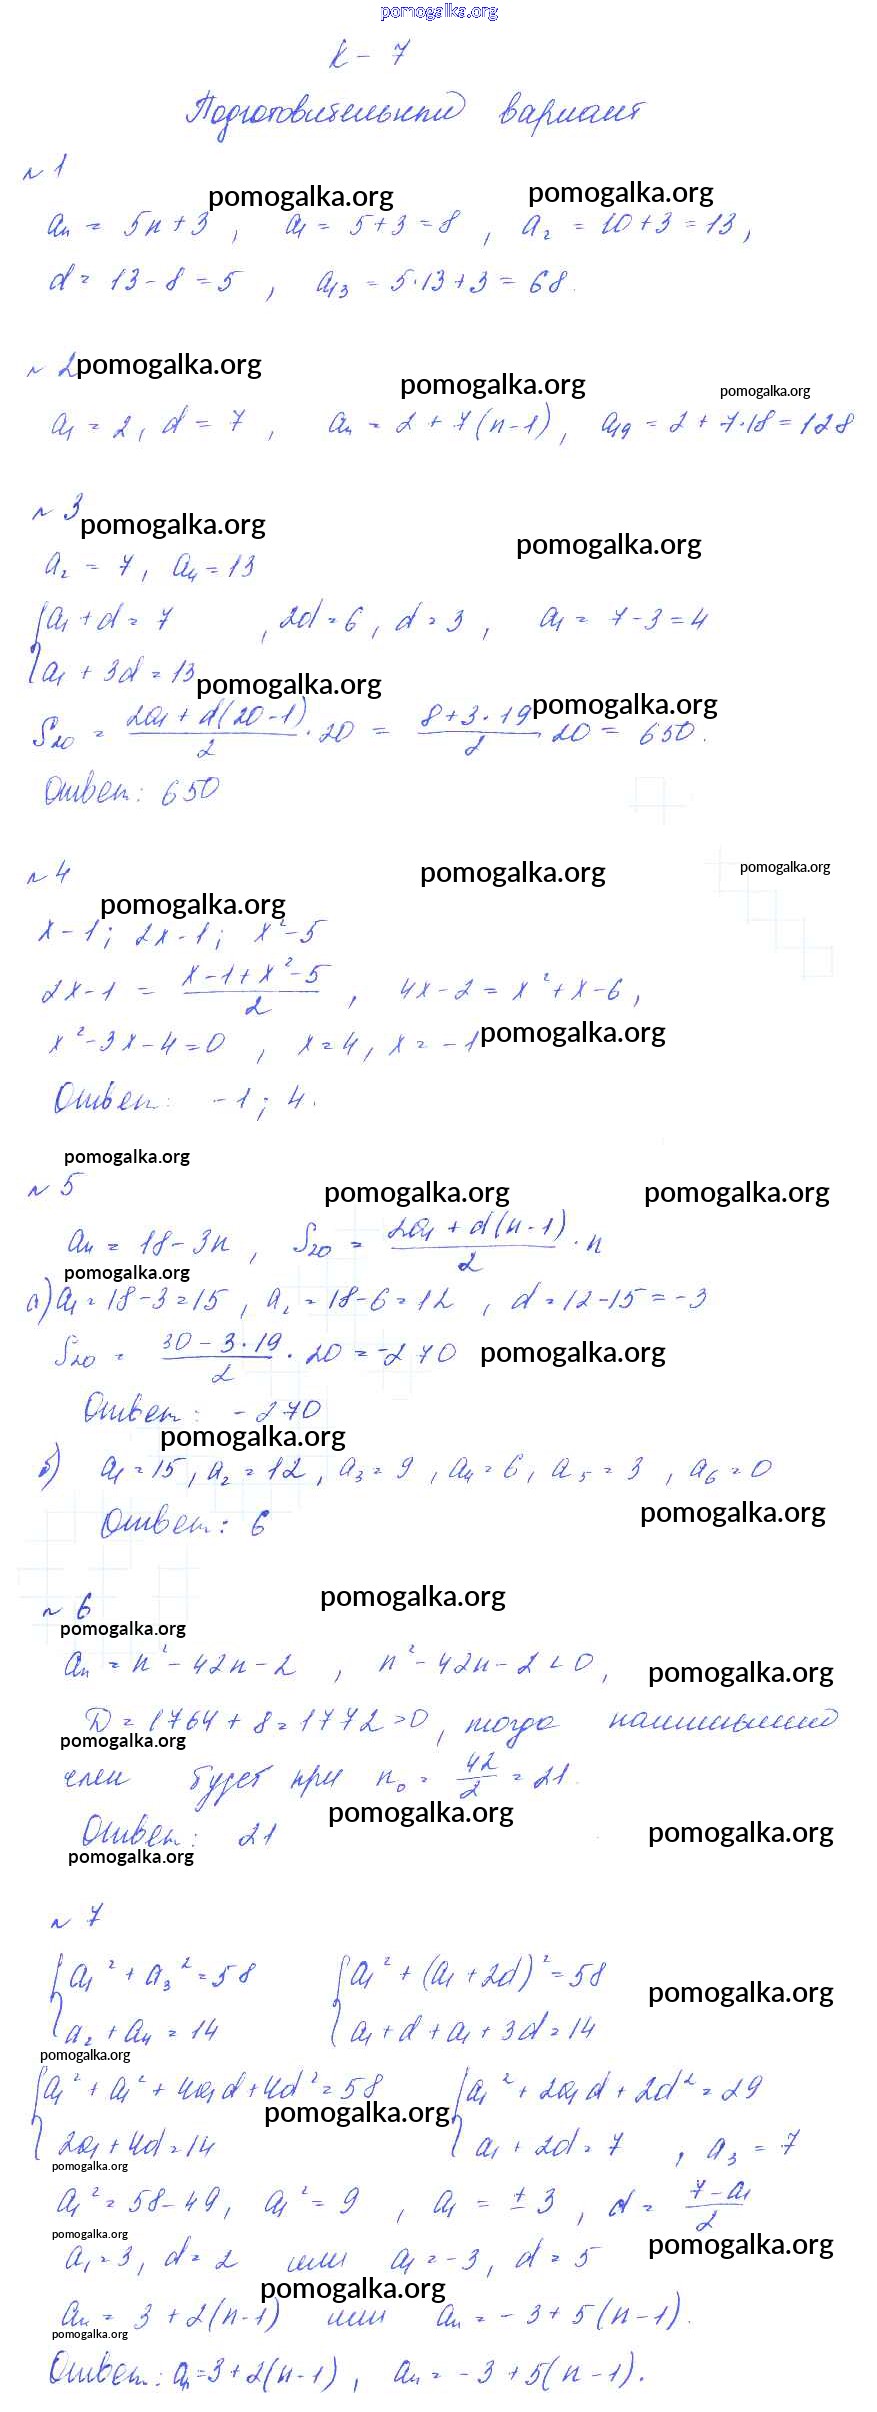 pomogalka.org
К – 7
Подготовительный вариант
№ 1
pomogalka.org pomogalka.org
aₙ = 5n + 3, a₁ = 5 + 3 = 8, a₂ = 10 + 3 = 13,
d = 13 – 8 = 5, a₁₃ = 5·13 + 3 = 68.
№ 2 pomogalka.org
pomogalka.org pomogalka.org
a₁ = 2, d = 7, aₙ = 2 + 7(n – 1), a₁₉ = 2 + 7·18 = 128
№ 3
pomogalka.org pomogalka.org
a₂ = 7, a₄ = 13
{a₁ + d = 7, 2d = 6, d = 3, a₁ = 7 – 3 = 4
{a₁ + 3d = 13
pomogalka.org pomogalka.org
S₂₀ = (2a₁ + d(20 – 1))/2 · 20 = (8 + 3·19)/2 · 20 = 650.
Ответ: 650
№ 4
pomogalka.org pomogalka.org
pomogalka.org
x – 1; 2x – 1; x² – 5
2x – 1 = (x – 1 + x² – 5)/2, 4x – 2 = x² + x – 6,
x² – 3x – 4 = 0, x = 4, x = – 1 pomogalka.org
Ответ: – 1; 4.
pomogalka.org
№ 5
pomogalka.org pomogalka.org
aₙ = 18 – 3n, S₂₀ = (2a₁ + d(n – 1))/2 · n
pomogalka.org
а) a₁ = 18 – 3 = 15, a₂ = 18 – 6 = 12, d = 12 – 15 = – 3
S₂₀ = (30 – 3·19)/2 · 20 = –270 pomogalka.org
Ответ: – 270
pomogalka.org
б) a₁ = 15, a₂ = 12, a₃ = 9, a₄ = 6, a₅ = 3, a₆ = 0
Ответ: 6 pomogalka.org
pomogalka.org
№ 6
pomogalka.org
aₙ = n² – 42n – 2, n² – 42n – 2 < 0,
pomogalka.org
D = 1764 + 8 = 1772 > 0, тогда наименьший
pomogalka.org
член будет при n₀ = 42/2 = 21.
pomogalka.org
Ответ: 21 pomogalka.org
pomogalka.org
№ 7
{a₁² + a₃² = 58 {a₁² + (a₁ + 2d)² = 58
pomogalka.org
{a₂ + a₄ = 14 {a₁ + d + a₁ + 3d = 14
pomogalka.org
{a₁² + a₁² + 4a₁d + 4d² = 58 {a₁² + 2a₁d + 2d² = 29
pomogalka.org
{2a₁ + 4d = 14 {a₁ + 2d = 7, a₃ = 7
pomogalka.org
a₁² = 58 – 49, a₁² = 9, a₁ = ± 3, d = (7 – a₁)/2
pomogalka.org
a₁ = 3, d = 2 или a₁ = – 3, d = 5 pomogalka.org
pomogalka.org
aₙ = 3 + 2(n – 1) или aₙ = – 3 + 5(n – 1).
pomogalka.org
Ответ: aₙ = 3 + 2(n – 1), aₙ = – 3 + 5(n – 1).